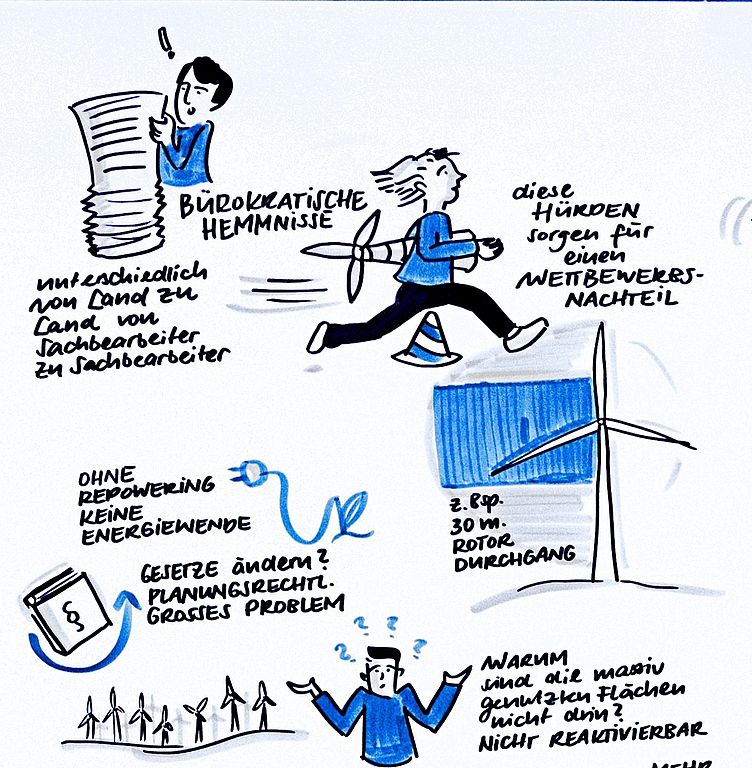 !
BÜROKRATISCHE
HEMMNISSE
unterschiedlich
von Land zu
Land von
Sachbearbeiter
zu Sachbearbeiter
diese
HÜRDEN
sorgen für
einen
WETTBEWERBS-
NACHTEIL
z. Bsp.
30 m.
ROTOR
DURCHGANG
OHNE
REPOWERING
KEINE
ENERGIEWENDE
GESETZE ändern?
PLANUNGSRECHTL.
GROSSES PROBLEM
§
? ? ? ?
WARUM
sind die massiv
genutzten Flächen
nicht drin?
NICHT REAKTIVIERBAR
MEHR